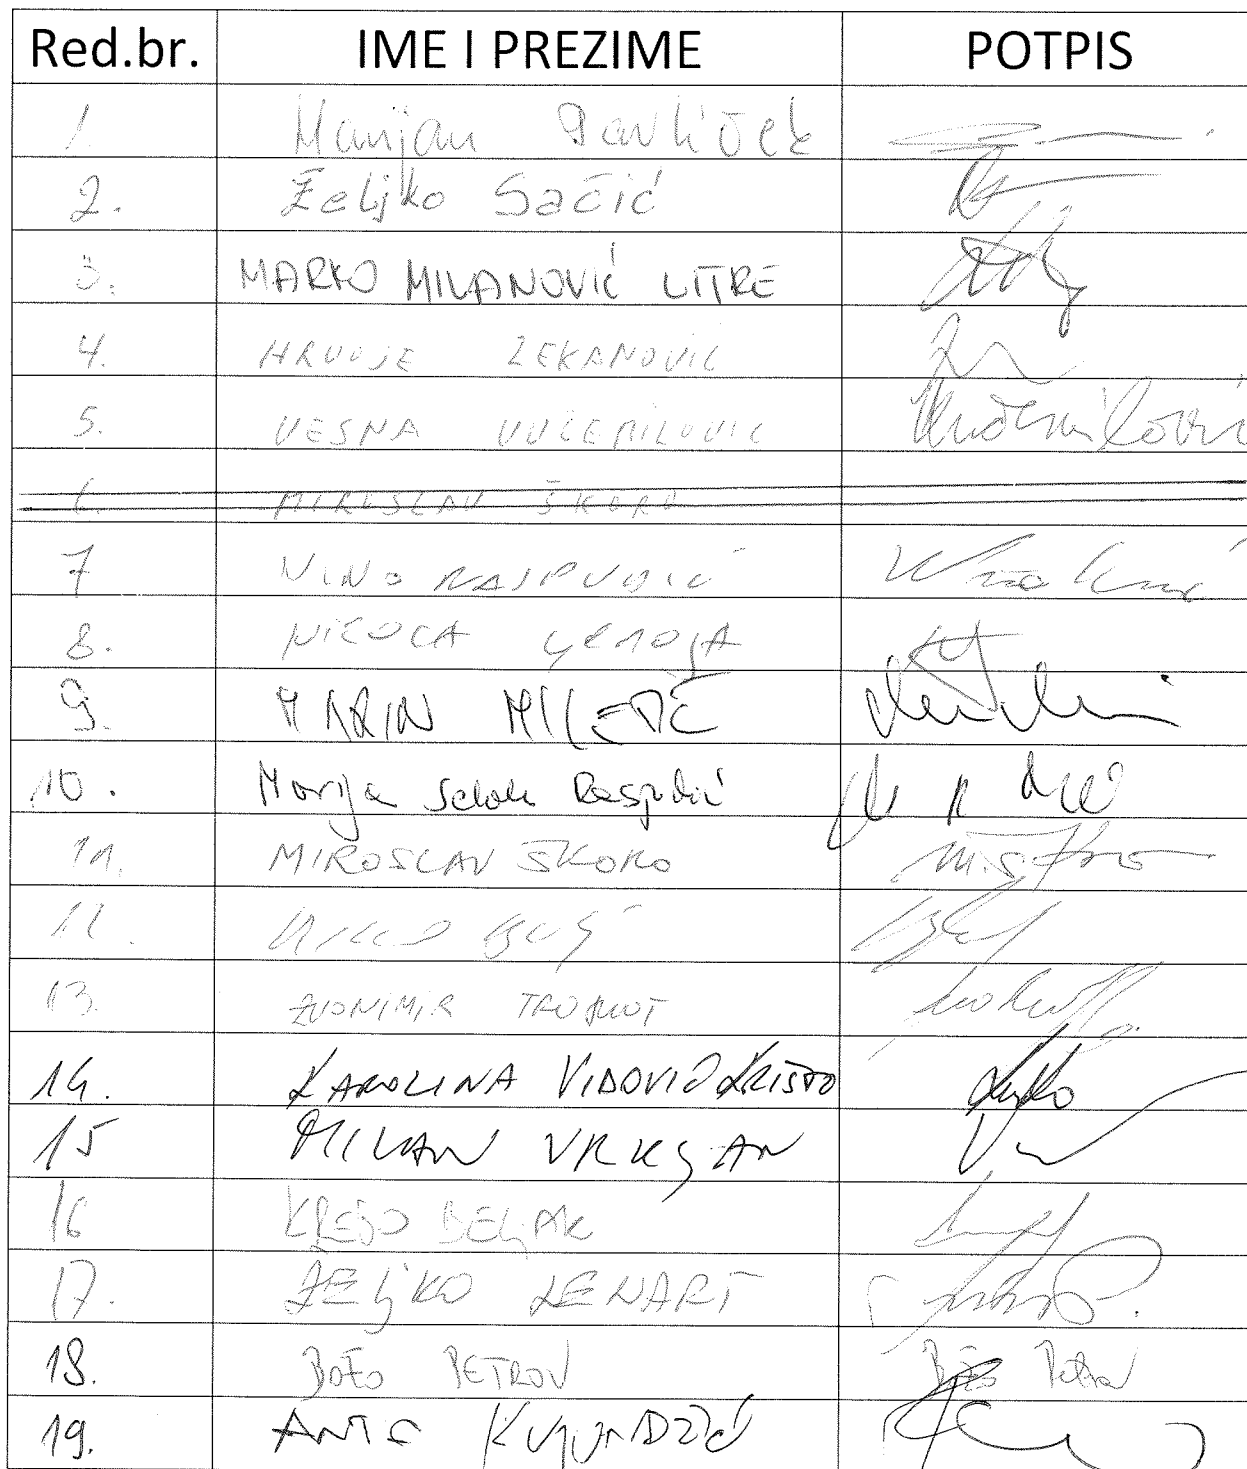 Red.br. IME I PREZIME POTPIS
1. Marijan Pavliček
2. Željko Sačić
3. MARKO MILANOVIĆ LITRE
4. HRVOJE ZEKANOVIĆ
5. VESNA VUČEMILOVIĆ Vučemilović
6. MIROSLAV ŠKORO
7 NINO RASPUDIĆ
8. NIKOLA GRMOJA
9. MARIN MILETIĆ
10. Marija Selak Raspudić
11. MIROSLAV ŠKORO M. Škoro
12. MIRO BULJ
13. ZVONIMIR TROSKOT
14. KAROLINA VIDOVIĆ KRIŠTO
15 MILAN VRKLJAN
16 KREŠO BELJAK
17. ŽELJKO LENART
18. BOŽO PETROV Božo Petrov
19. ANTE KUJUNDŽIĆ